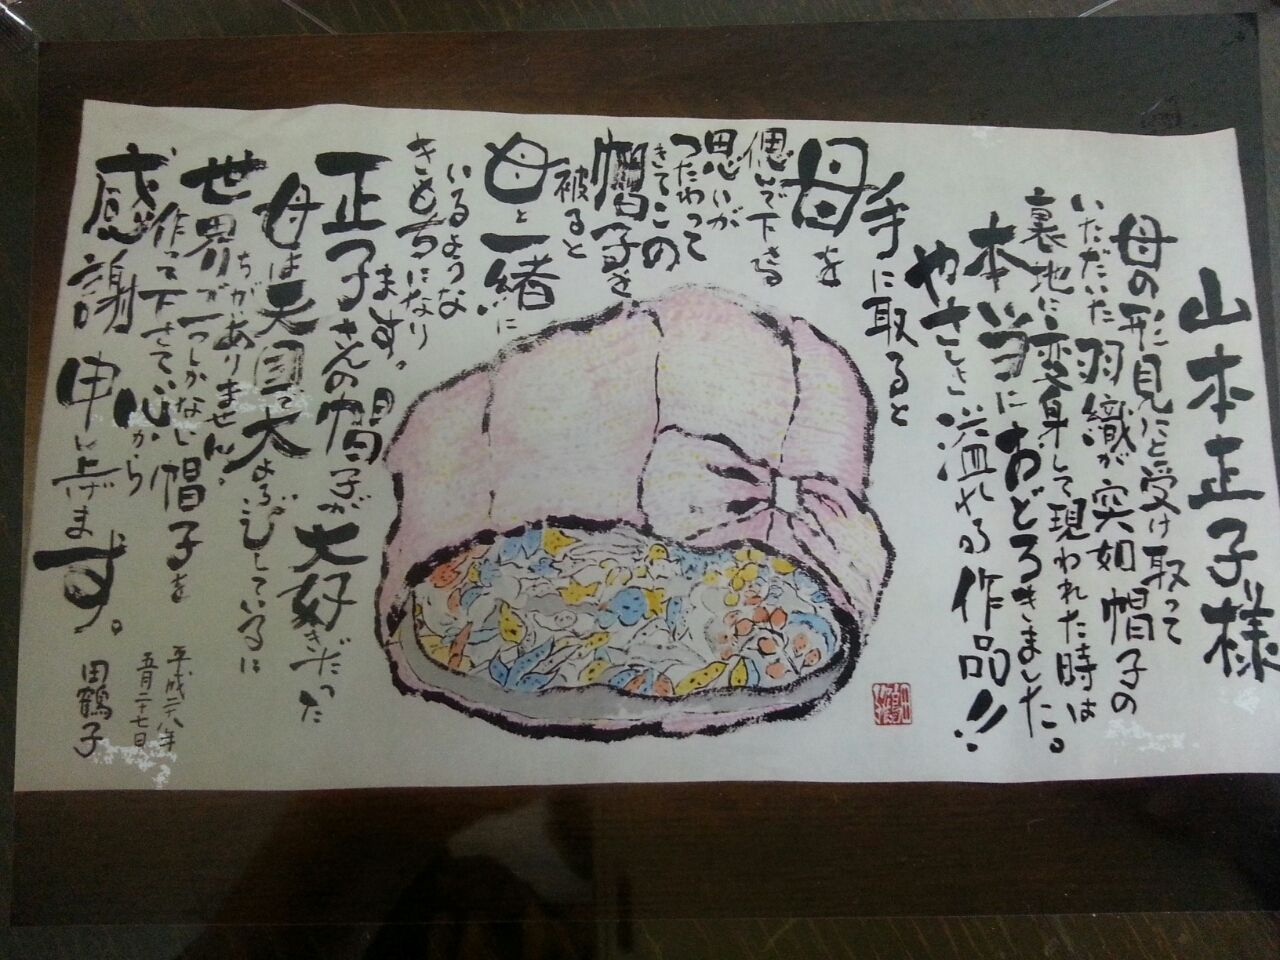 山本正子様
母の形見にと受け取って
いただいた羽織が突如帽子の
裏地に変身して現われた時は
本当におどろきました。
やさしさ溢れる作品!!
手に取ると
母を
偲んで下さる
思いが
つたわって
きてこの
帽子を
被ると
母と一緒に
いるような
きもちになり
ます。
正子さんの帽子が
大好きだった
母は天国で大よろこびしているに
ちがありません。
世界で一つしかない帽子を
作って下さて心から
感謝申し上げます。
平成二八年
五月二十七日
田鶴子